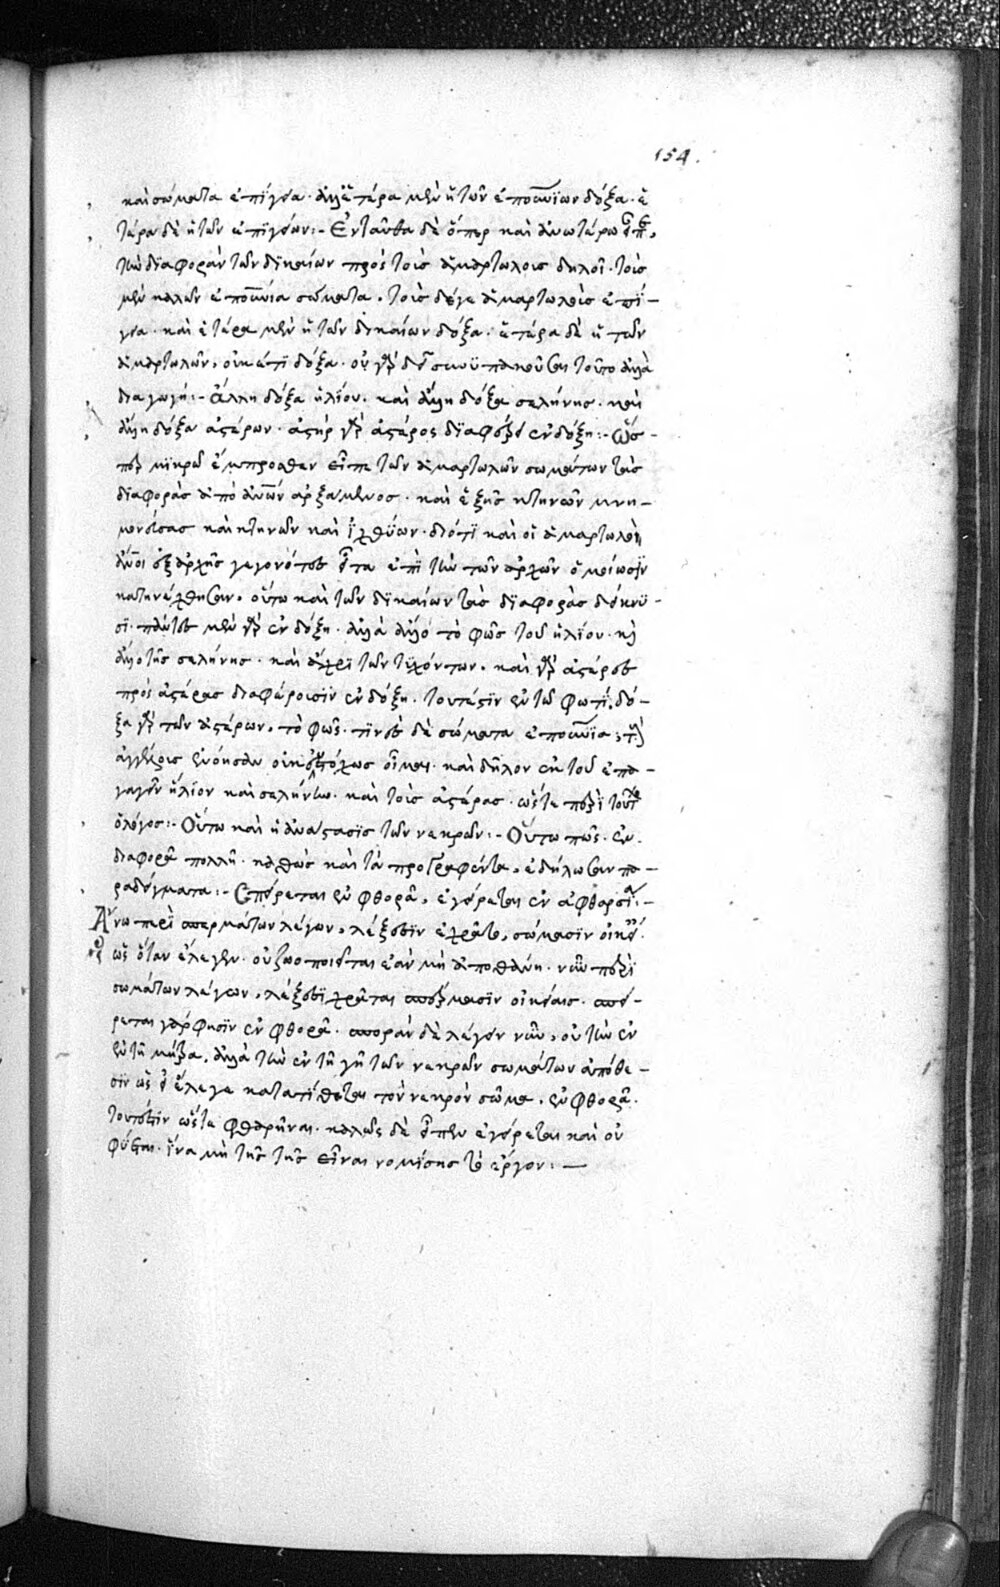 154.
καὶ σώματα ἐπίγεια. ἀλλ' ἑτέρα μὲν ἡ τῶν ἐπουνίων δόξα. ἑ
τέρα δὲ ἡ τῶν ἐπιγείων:- Ἐνταῦθα δὲ ὅπερ καὶ ἀνωτέρω
τὴν διαφορὰν τῶν δικαίων πρὸς τοὺς ἁμαρτωλοὺς δηλοῖ. τοὺς
μὲν καλῶν ἐπουνία σώματα. τοὺς δέγε ἁμαρτωλοὺς ἐπί-
γεια. καὶ ἑτέρα μὲν ἡ τῶν δικαίων δόξα. ἑτέρα δὲ ἡ τῶν
ἁμαρτωλῶν, οὐκέτι δόξα. οὐ γὰρ δεῖ συνυπακοῦσαι τοῦτο ἀλλὰ
διαγωγή:- ἄλλη δόξα ἡλίου. καὶ ἄλλη δόξα σελήνης. καὶ
ἄλλη δόξα ἀστέρων. ἀστὴρ γὰρ ἀστέρος διαφέρει ἐν δόξη:- ὥσ-
περ μικρῶ ἔμπροσθεν εἶπε τῶν ἁμαρτωλῶν σωμάτων τὰς
διαφορὰς ἀπὸ ἀνων ἀρξάμενος. καὶ ἑξῆς πτηνῶν μνη-
μονεύσας καὶ κτηνῶν καὶ ἰχθύων. διότι καὶ οἱ ἁμαρτωλοὶ
ἄνοι ἐξαρχῆς γεγονότες εἶτα ἐπὶ τὴν τῶν ὁμοίωσιν
κατηνέχθησαν. οὕτω καὶ τῶν δικαίων τὰς διαφορὰς δείκνυ-
σι. πάντες μὲν γὰρ ἐν δόξη. ἀλλὰ ἄλλο τὸ φῶς τοῦ ἡλίου. καὶ
ἄλλο τῆς σελήνης. καὶ ἄχρι τῶν τυχόντων. καὶ γὰρ ἀστέρες
πρὸς ἀστέρας διαφέρουσιν ἐν δόξη. τουτέστιν ἐν τῶ φωτί. δό-
ξα γὰρ τῶν ἀστέρων. τὸ φῶς. τινὲς δὲ σώματα ἐπουνία,
ἀγγέλους ἐνόησαν οὐκ εὐστόχως οἶμαι. καὶ δῆλον ἐκ τοῦ ἐπα-
γαγεῖν ἥλιον καὶ σελήνην. καὶ τοὺς ἀστέρας. ὥστε περὶ τούτων
ὁ λόγος:- Οὕτω καὶ ἡ ἀνάστασις τῶν νεκρῶν:- Οὕτω πῶς. ἐν
διαφορᾶ πολλῆ. καθὼς καὶ τὰ προγραφέντα, ἐδήλωσαν πα-
ραδείγματα:- Σπείρεται ἐν φθορᾶ, ἐγείρεται ἐν ἀφθαρσία:-
Ἄνω περὶ σπερμάτων λέγων, λέξεσιν ἐχρᾶτο, σώμασιν οἰκεί
ως ὅταν ἔλεγεν. οὐ ζωοποιεῖται ἐὰν μὴ ἀποθάνη. νῦν περὶ
σωμάτων λέγων, λέξεσι χρᾶται σπέρμασιν οἰκείαις. σπεί-
ρεται γάρ φησιν ἐν φθορᾶ. σπορὰν δὲ λέγει νῦν, οὐ τὴν ἐν
ἐν τῆ μήτρα, ἀλλὰ τὴν ἐν τῆ γῆ τῶν νεκρῶν σωμάτων ἀπόθε-
σιν ὡς εἰ ἔλεγε κατατίθεται τὸν νεκρὸν σῶμα, ἐν φθορᾶ.
τουτέστιν ὥστε φθαρῆναι. καλῶς δὲ εἶπεν ἐγείρεται καὶ οὐ
φύεται. ἵνα μὴ τῆς τῆς εἶναι νομίσης τὸ ἔργον:—